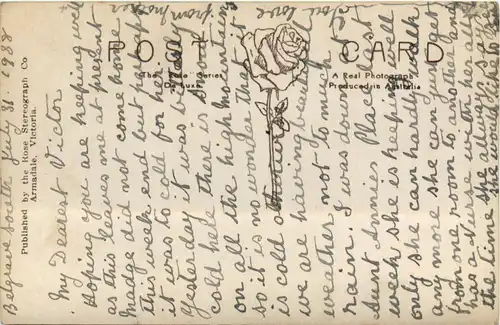 Belgrave South July 31. 1938
Published by the Rose Stereograph Co
Armadale, Victoria.
POST CARD
The "Rose" Series
De Luxe
A Real Photograph
Produced in Australia
My Dearest Victor
Hoping you are keeping well
as this leaves me at present
Madge did not come home
this week end but perhaps
it was to cold for her
Yesterday it was bitterly
cold here there is snow
on all the high mountains
so it is no wonder that it
is cold
we are having beautiful
weather not to much
rain. I was down at
Aunt Annies Place last
week she is keeping well
only she can hardly walk
any more she can just get
from one room to another and
has a Nurse with her all
the time she
Love
from Mother